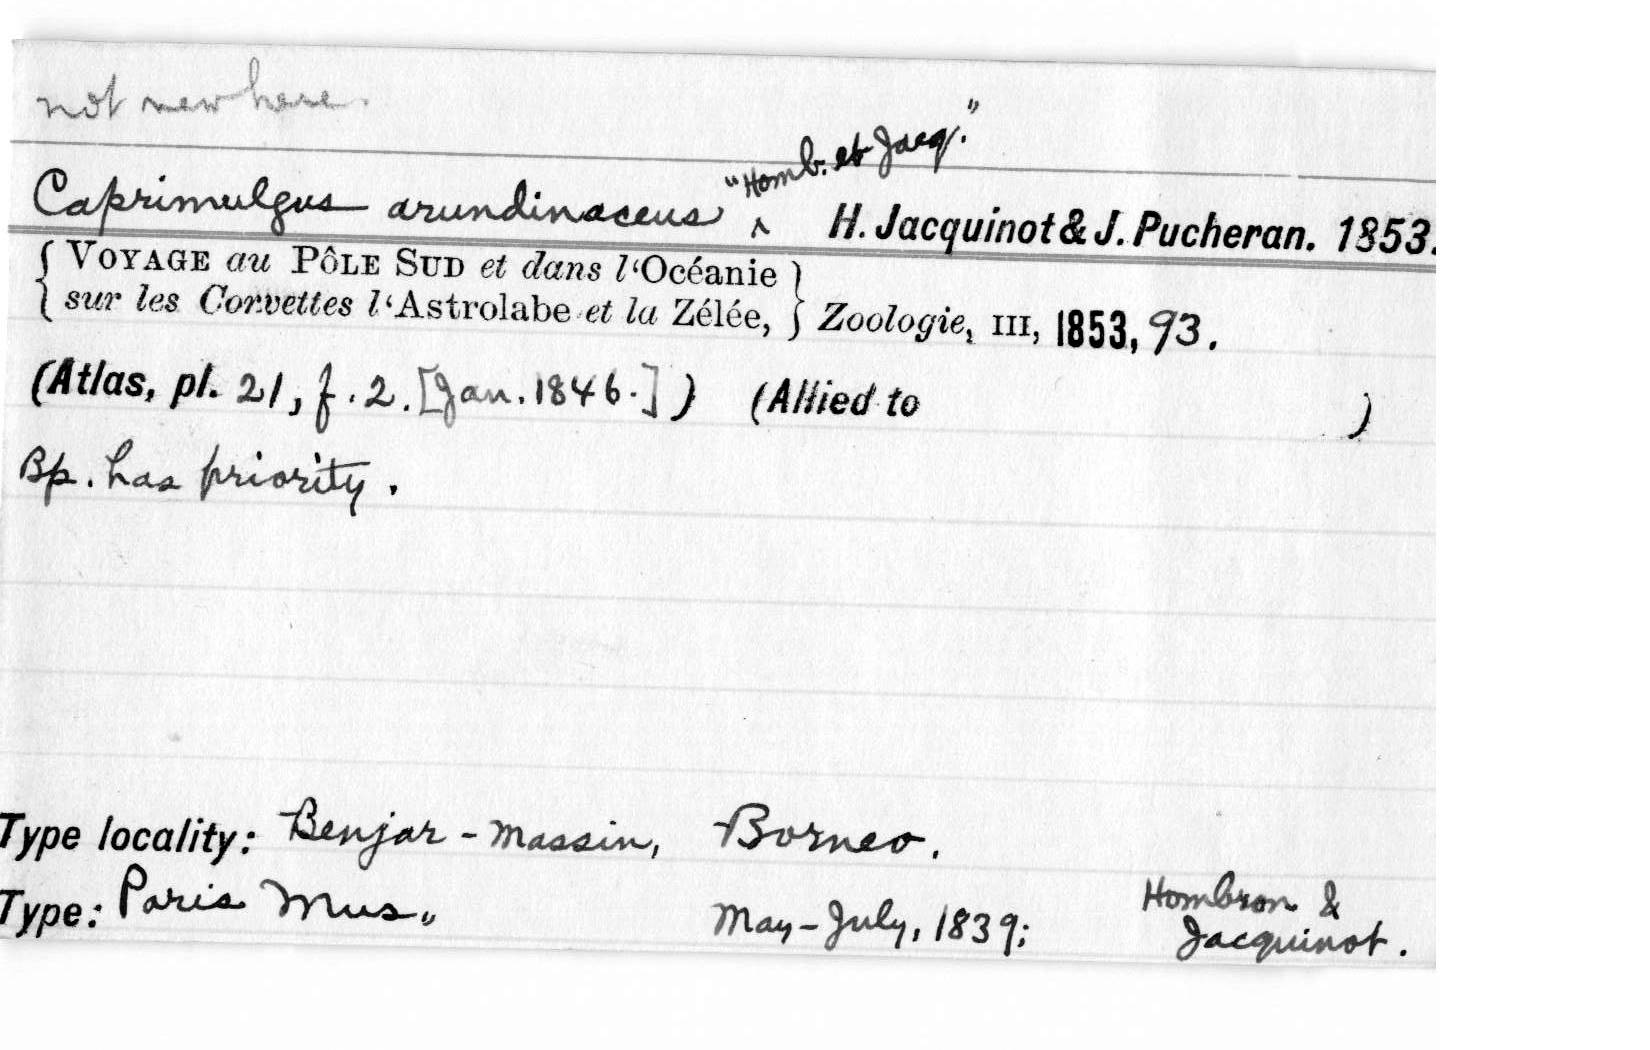 not new here.
Caprimulgus arundinaceus ‸ "Homb. et Jacq." H. Jacquinot & J. Pucheran. 1853.
{ VOYAGE au PÔLE SUD et dans l'Océanie }
{ sur les Corvettes l'Astrolabe et la Zélée, } Zoologie, III, 1853, 93.
(Atlas, pl. 21, f. 2. [Jan. 1846.] ) (Allied to )
Bp. has priority.
Type locality: Benjar-Massin, Borneo.
Type: Paris Mus., May-July, 1839; Hombron &
Jacquinot.